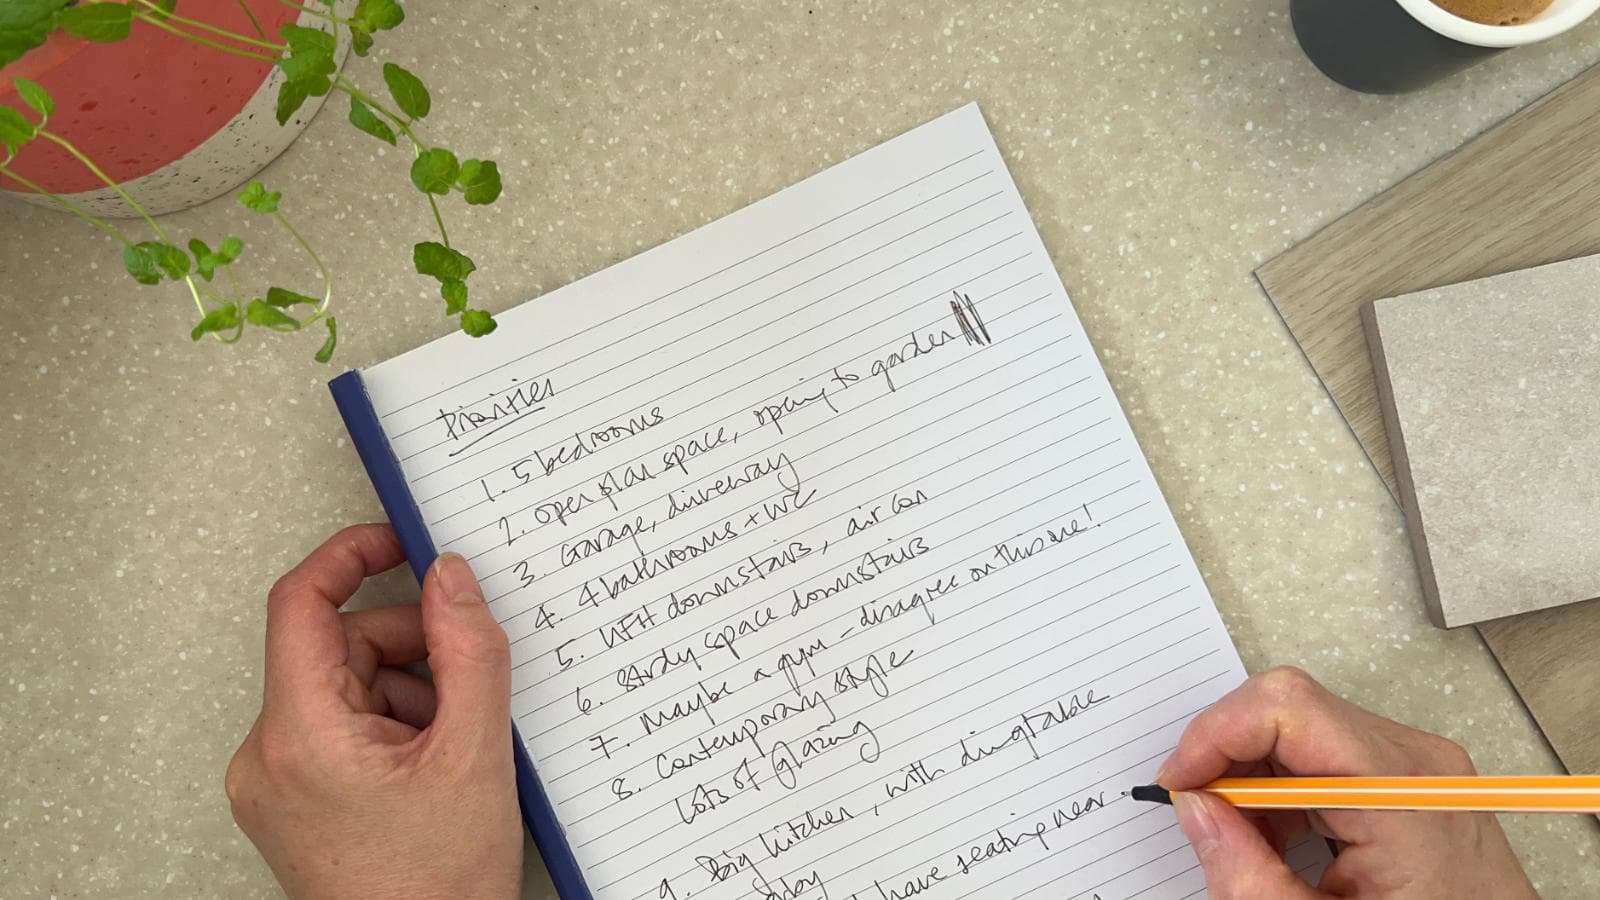 Priorities
1. 5 bedrooms
2. open plan space, opening to garden
3. Garage, driveway
4. 4 bathrooms + WC
5. UFH downstairs, air con
6. Study space downstairs
7. Maybe a gym - disagree on this one!
8. Contemporary style
Lots of glazing
9. Big kitchen, with dining table
have seating near